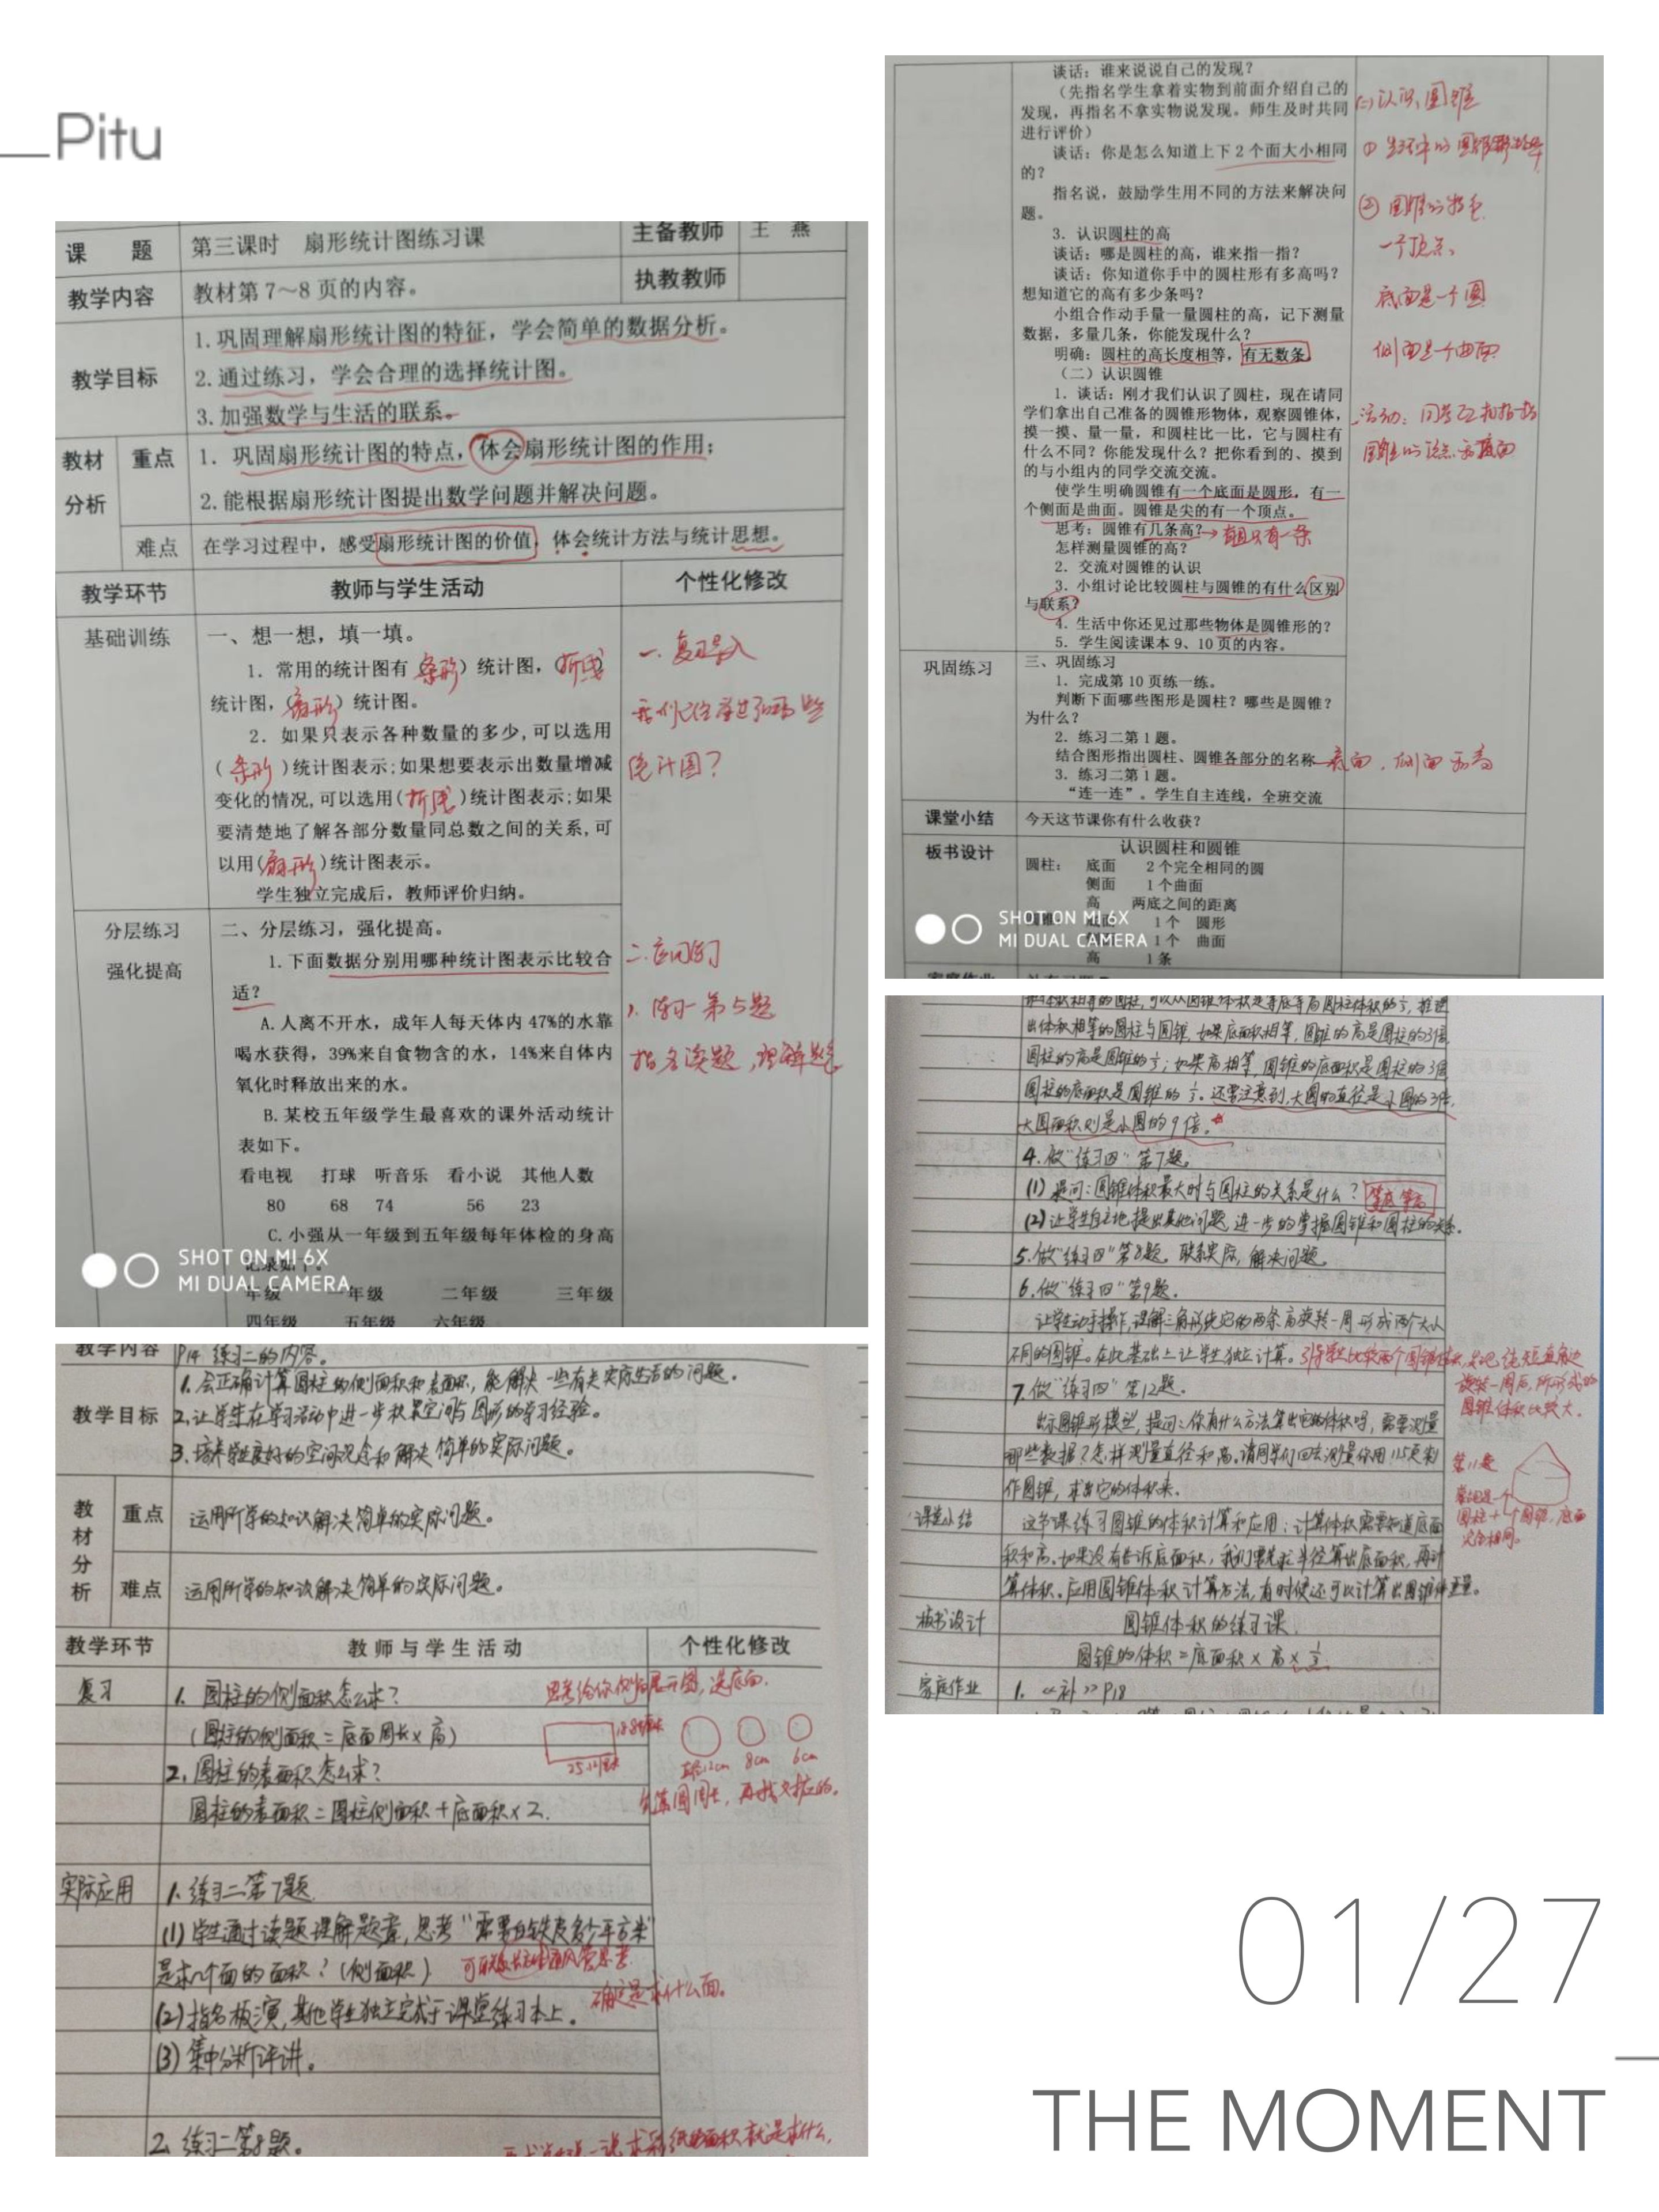 Pitu
课 题 第三课时 扇形统计图练习课 主备教师 王 燕
教学内容 教材第7～8页的内容。 执教教师
教学目标
1.巩固理解扇形统计图的特征，学会简单的数据分析。
2.通过练习，学会合理的选择统计图。
3.加强数学与生活的联系。
教材分析 重点
1. 巩固扇形统计图的特点，体会扇形统计图的作用；
2.能根据扇形统计图提出数学问题并解决问题。
难点 在学习过程中，感受扇形统计图的价值，体会统计方法与统计思想。
教学环节 教师与学生活动 个性化修改
基础训练 一、想一想，填一填。
1. 常用的统计图有（条形）统计图，（折线）
统计图，（扇形）统计图。
2. 如果只表示各种数量的多少,可以选用
（条形）统计图表示;如果想要表示出数量增减
变化的情况,可以选用(折线)统计图表示;如果
要清楚地了解各部分数量同总数之间的关系,可
以用(扇形)统计图表示。
学生独立完成后，教师评价归纳。
一. 复习导入
我们已经学过了哪些
统计图？
分层练习
强化提高
二、分层练习，强化提高。
1.下面数据分别用哪种统计图表示比较合
适？
A.人离不开水，成年人每天体内47%的水靠
喝水获得，39%来自食物含的水，14%来自体内
氧化时释放出来的水。
B.某校五年级学生最喜欢的课外活动统计
表如下。
看电视 打球 听音乐 看小说 其他人数
80 68 74 56 23
C.小强从一年级到五年级每年体检的身高
年级 一年级 二年级 三年级
四年级 五年级 六年级
1. 练习一第5题
指名读题，理解题意
SHOT ON MI 6X
MI DUAL CAMERA
谈话：谁来说说自己的发现？
（先指名学生拿着实物到前面介绍自己的
发现，再指名不拿实物说发现。师生及时共同
进行评价）
谈话：你是怎么知道上下2个面大小相同
的？
指名说，鼓励学生用不同的方法来解决问
题。
3．认识圆柱的高
谈话：哪是圆柱的高，谁来指一指？
谈话：你知道你手中的圆柱形有多高吗？
想知道它的高有多少条吗？
小组合作动手量一量圆柱的高，记下测量
数据，多量几条，你能发现什么？
明确：圆柱的高长度相等，有无数条
（二）认识圆锥
1．谈话：刚才我们认识了圆柱，现在请同
学们拿出自己准备的圆锥形物体，观察圆锥体，
摸一摸、量一量，和圆柱比一比，它与圆柱有
什么不同？你能发现什么？把你看到的、摸到
的与小组内的同学交流交流。
使学生明确圆锥有一个底面是圆形，有一
个侧面是曲面。圆锥是尖的有一个顶点。
思考：圆锥有几条高？
怎样测量圆锥的高？
2．交流对圆锥的认识
3．小组讨论比较圆柱与圆锥的有什么区别
与联系？
4．生活中你还见过那些物体是圆锥形的？
5．学生阅读课本9、10页的内容。
(二)认识圆锥
② 圆锥的特色
一个顶点、
底面是一个圆
侧面是一个曲面
巩固练习 三、巩固练习
1．完成第10页练一练。
判断下面哪些图形是圆柱？哪些是圆锥？
为什么？
2．练习二第1题。
结合图形指出圆柱、圆锥各部分的名称 底面，侧面和高
3．练习二第1题。
“连一连”。学生自主连线，全班交流
课堂小结 今天这节课你有什么收获？
板书设计 认识圆柱和圆锥
圆柱： 底面 2个完全相同的圆
侧面 1个曲面
高 两底之间的距离
底面 1个 圆形
1个 曲面
高 1条
SHOT ON MI 6X
MI DUAL CAMERA
教学内容 P14 练习二的内容。
教学目标
1. 会正确计算圆柱的侧面积和表面积，能解决一些有关实际生活的问题。
2.让学生在学习活动中进一步积累空间与图形的学习经验。
3.培养学生良好的空间观念和解决简单的实际问题。
教材分析 重点 运用所学的知识解决简单的实际问题。
难点 运用所学的知识解决简单的实际问题。
教学环节 教师与学生活动 个性化修改
复习 1. 圆柱的侧面积怎么求？
（圆柱的侧面积＝底面周长×高）
2. 圆柱的表面积怎么求？
圆柱的表面积＝圆柱侧面积＋底面积×2.
8cm 6cm
实际应用 1. 练习二第7题.
(1)学生通过读题理解题意，思考“需要白铁皮多少平方米”
是求几个面的面积？（侧面积）
确定是求什么面。
(2)指名板演，其他学生独立完成于课堂练习本上。
(3)集中分析评讲。
2. 练习二第8题。
出体积相等的圆柱与圆锥，如果底面积相等，圆锥的高是圆柱的3倍，
圆柱的高是圆锥的⅓；如果高相等，圆锥的底面积是圆柱的3倍
圆柱的底面积是圆锥的⅓。还需注意到，大圆的直径是小圆的3倍，
大圆面积则是小圆的9倍。
4. 做“练习四”第7题。
(1)提问：圆锥体积最大时与圆柱的关系是什么？ 等底等高
(2)让学生自主地提出其他问题，进一步的掌握圆锥和圆柱的关系。
5.做“练习四”第8题。联系实际，解决问题。
6.做“练习四”第9题.
让学生动手操作，理解三角形绕它的两条高旋转一周形成两个大小
不同的圆锥。在此基础上让学生独立计算。
旋转一周后，所形成的
圆锥体积比较大。
7.做“练习四”第12题.
出示圆锥形模型，提问：你有什么方法算出它的体积吗，需要测量
那些数据？怎样测量直径和高。请同学们回去测量你用115页制
作圆锥，求出它的体积来。
第11题
课堂小结 这节课练习圆锥的体积计算和应用：计算体积需要知道底面
积和高。如果没有告诉底面积，我们要先求半径算出底面积，再计
算体积。应用圆锥体积计算方法，有时候还可以计算出圆锥体重量。
板书设计 圆锥体积的练习课.
圆锥的体积＝底面积×高×⅓
家庭作业 1. 《补》P18
01/27
THE MOMENT